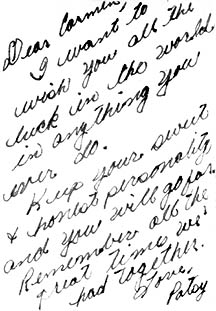 Dear Carmen,
I want to
wish you all the
luck in the world
in any thing you
ever do.
Keep your sweet
& honest personality
and you will go far.
Remember all the
great times we
had together.
Love,
Patsy